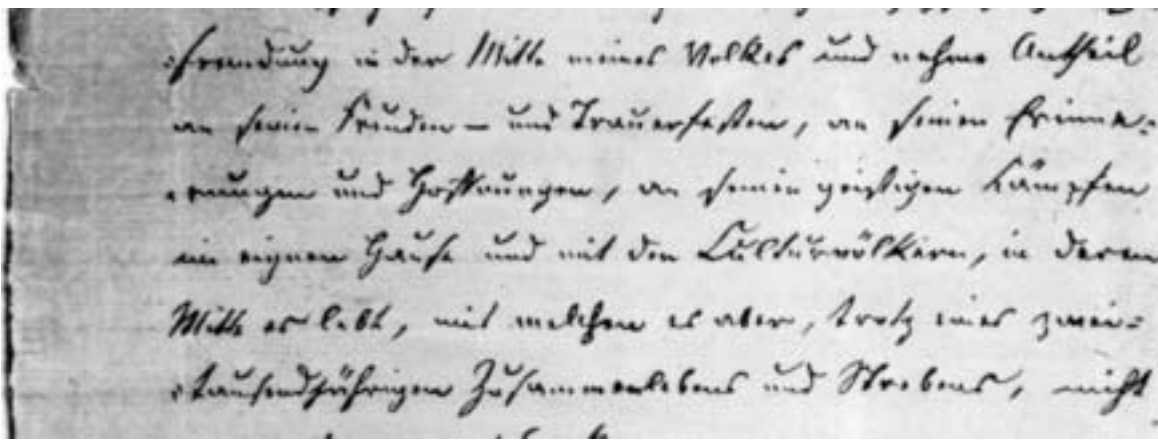 in der Mitte meines Volkes und nehme Antheil
an seinen Freuden- und Trauerfesten, an seinen Erinne-
rungen und Hoffnungen, an seinen geistigen Kämpfen
im eignen Hause und mit den Culturvölkern, in deren
Mitte es lebt, mit welchen es aber, trotz eines zwei-
tausendjährigen Zusammenlebens und Strebens, nicht